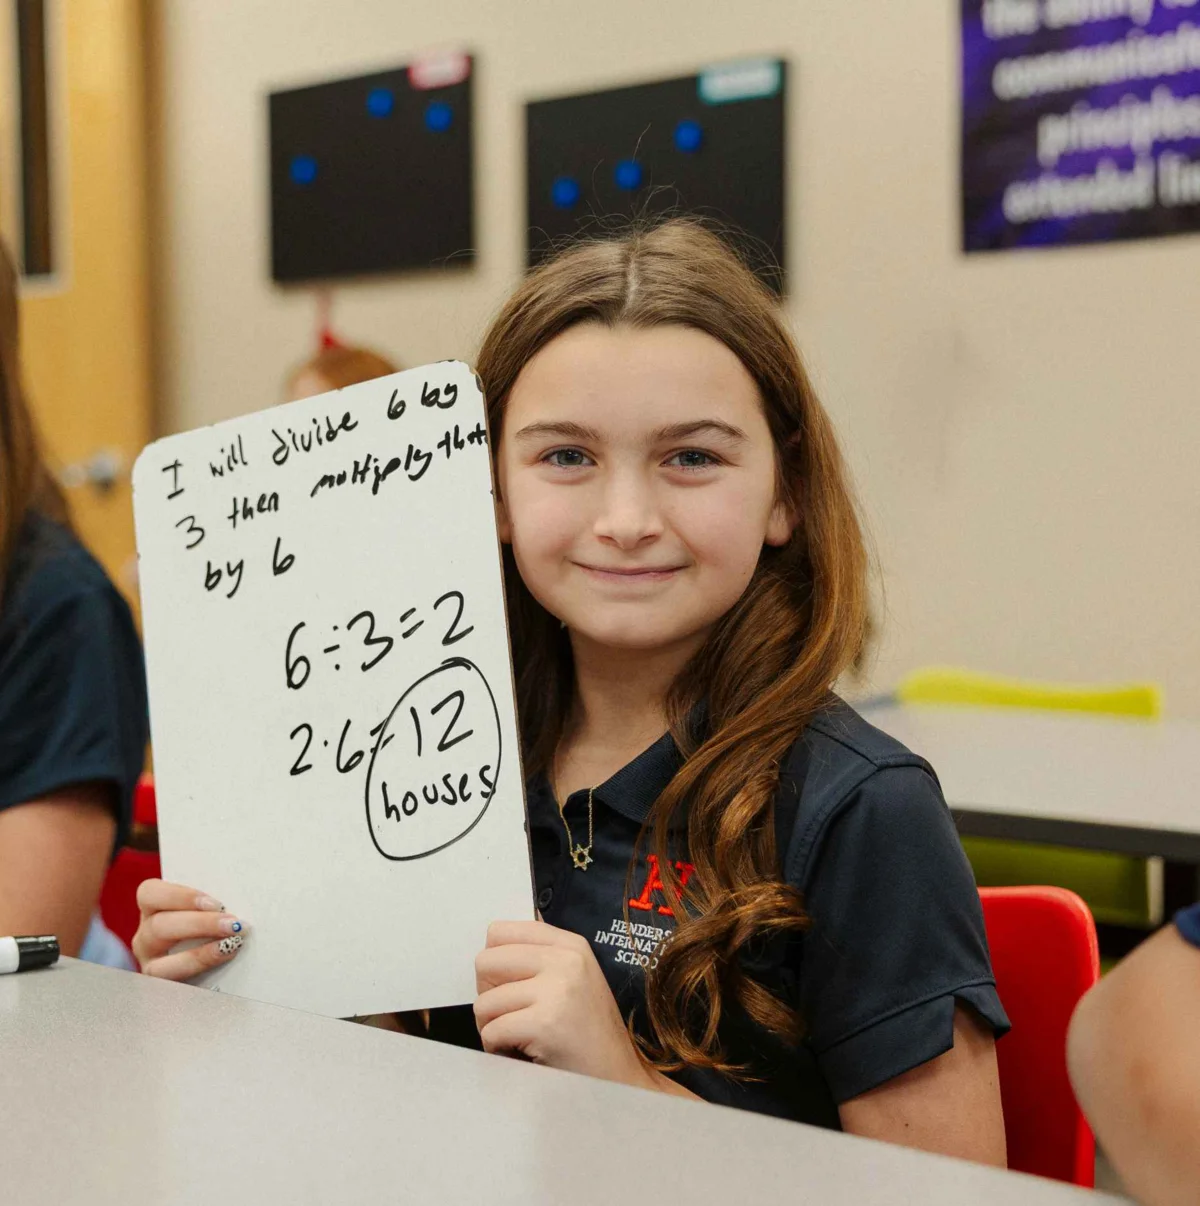 I will divide 6 by
3 then multiply that
by 6
6÷3=2
2·6=12
houses
the ability to
principles
extended
H
INTERNATI
SCHOO